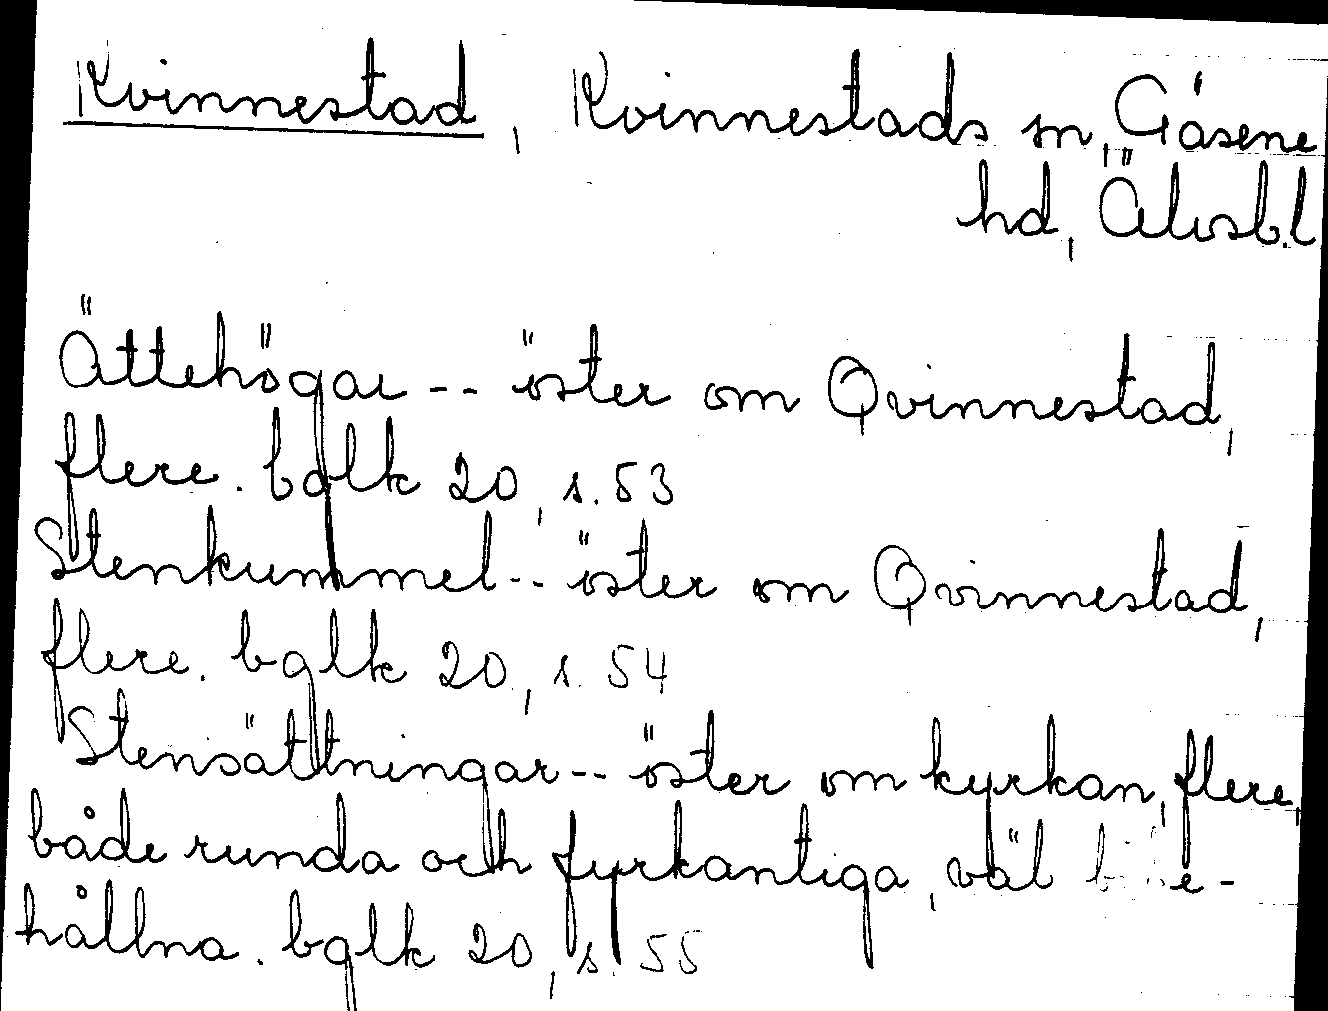 Kvinnestad, Kvinnestads sn, Gäsene
hd, Älvsb.l
Ättehögar -- öster om Qvinnestad,
flere. bglk 20, s. 53
Stenkummel -- öster om Qvinnestad,
flere. bglk 20, s. 54
Stensättningar -- öster om kyrkan, flere,
både runda och fyrkantiga, väl be-
hållna. bglk 20, s. 55